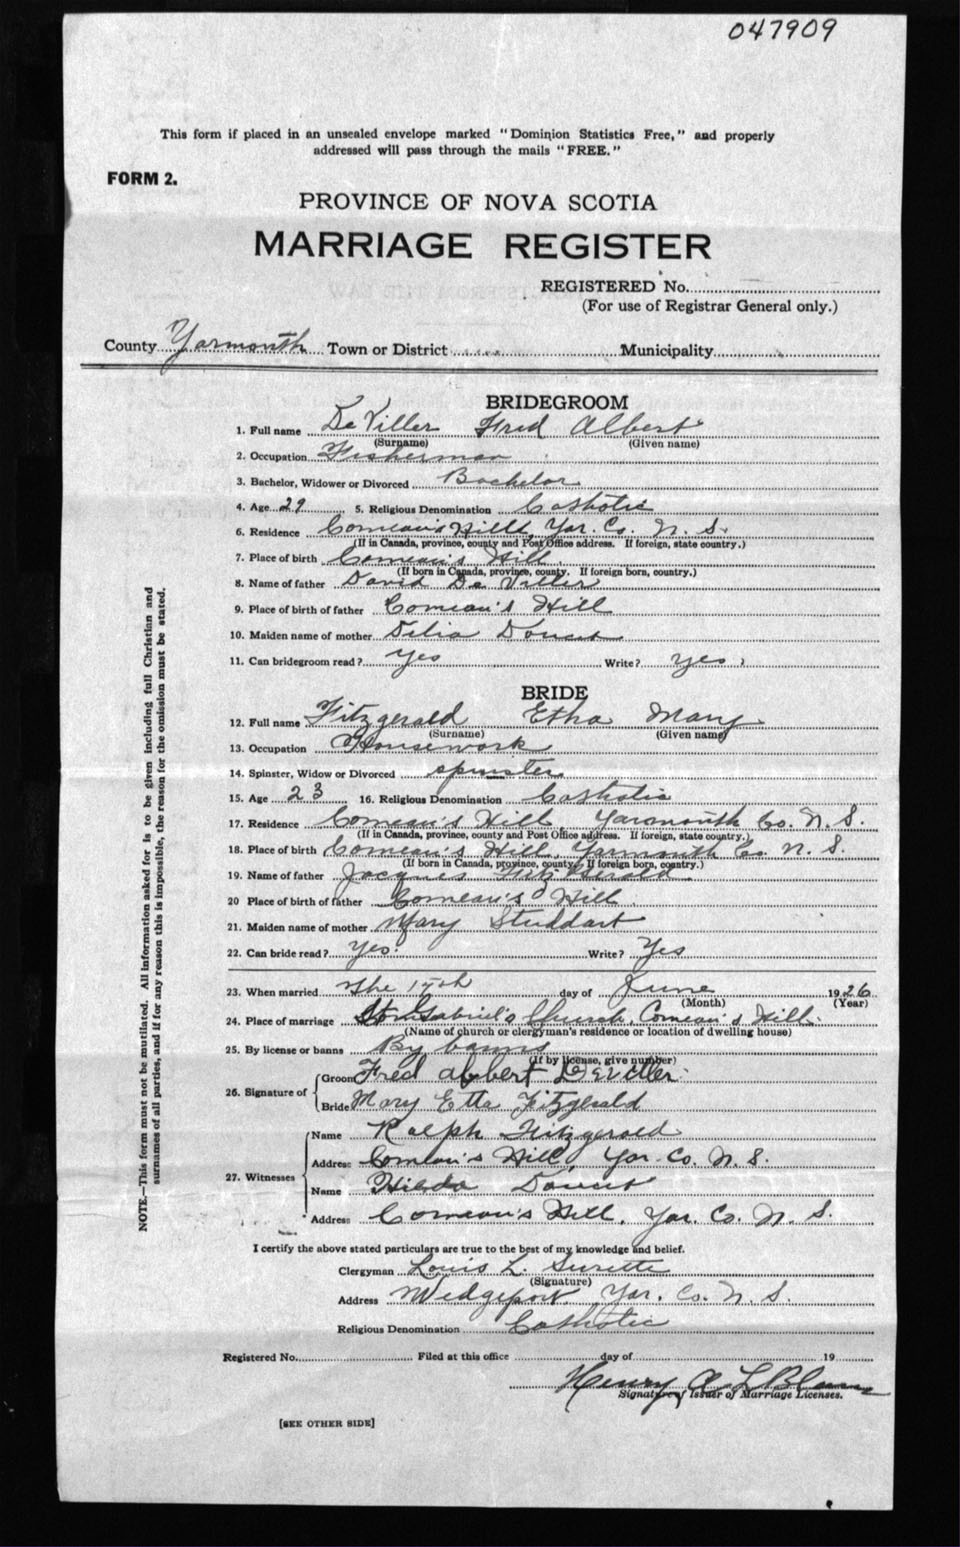 047909
This form if placed in an unsealed envelope marked "Dominion Statistics Free," and properly
addressed will pass through the mails "FREE."
FORM 2.
PROVINCE OF NOVA SCOTIA
MARRIAGE REGISTER
REGISTERED No.
(For use of Registrar General only.)
County Yarmouth Town or District Municipality
BRIDEGROOM
1. Full name De Viller Fred Albert
(Surname) (Given name)
2. Occupation Fisherman
3. Bachelor, Widower or Divorced Bachelor
4. Age 29 5. Religious Denomination Catholic
6. Residence Comeau's Hill, Yar. Co. N. S.
(If in Canada, province, county and Post Office address. If foreign, state country.)
7. Place of birth Comeau's Hill
(If born in Canada, province, county. If foreign born, country.)
8. Name of father David De Viller
9. Place of birth of father Comeau's Hill
10. Maiden name of mother Delia Doucet
11. Can bridegroom read? yes Write? yes
BRIDE
12. Full name Fitzgerald Etha Mary
(Surname) (Given name)
13. Occupation Housework
14. Spinster, Widow or Divorced spinster
15. Age 23 16. Religious Denomination Catholic
17. Residence Comeau's Hill, Yarmouth Co. N. S.
(If in Canada, province, county and Post Office address. If foreign, state country.)
18. Place of birth Comeau's Hill, Yarmouth Co N. S.
(If born in Canada, province, county. If foreign born, country.)
19. Name of father Jacques Fitzgerald
20 Place of birth of father Comeau's Hill
21. Maiden name of mother Mary Studdart
22. Can bride read? Yes. Write? Yes
23. When married The 17th day of June 1926
(Month) (Year)
24. Place of marriage Gabriel's Church, Comeau's Hill.
(Name of church or clergyman's residence or location of dwelling house)
25. By license or banns By banns
(If by license, give number)
26. Signature of
Groom Fred albert Deviller
Bride Mary Etta Fitzgerald
27. Witnesses
Name Ralph Fitzgerald
Address Comeau's Hill, Yar. Co. N. S.
Name Hilda Doucet
Address Comeau's Hill, Yar. Co. N. S.
I certify the above stated particulars are true to the best of my knowledge and belief.
Clergyman Louis L. Surette
(Signature)
Address Wedgeport Yar. Co. N. S.
Religious Denomination Catholic
Registered No. Filed at this office day of 19
Henry A
Signature of Issuer of Marriage Licenses.
[SEE OTHER SIDE]
NOTE.—This form must not be mutilated. All information asked for is to be given including full Christian and
surnames of all parties, and if for any reason this is impossible, the reason for the omission must be stated.